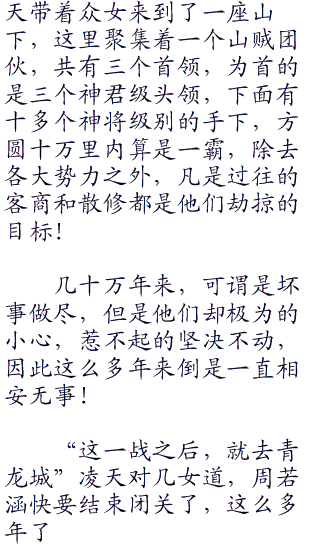 天带着众女来到了一座山
下，这里聚集着一个山贼团
伙，共有三个首领，为首的
是三个神君级头领，下面有
十多个神将级别的手下，方
圆十万里内算是一霸，除去
各大势力之外，凡是过往的
客商和散修都是他们劫掠的
目标！
几十万年来，可谓是坏
事做尽，但是他们却极为的
小心，惹不起的坚决不动，
因此这么多年来倒是一直相
安无事！
“这一战之后，就去青
龙城”凌天对几女道，周若
涵快要结束闭关了，这么多
年了